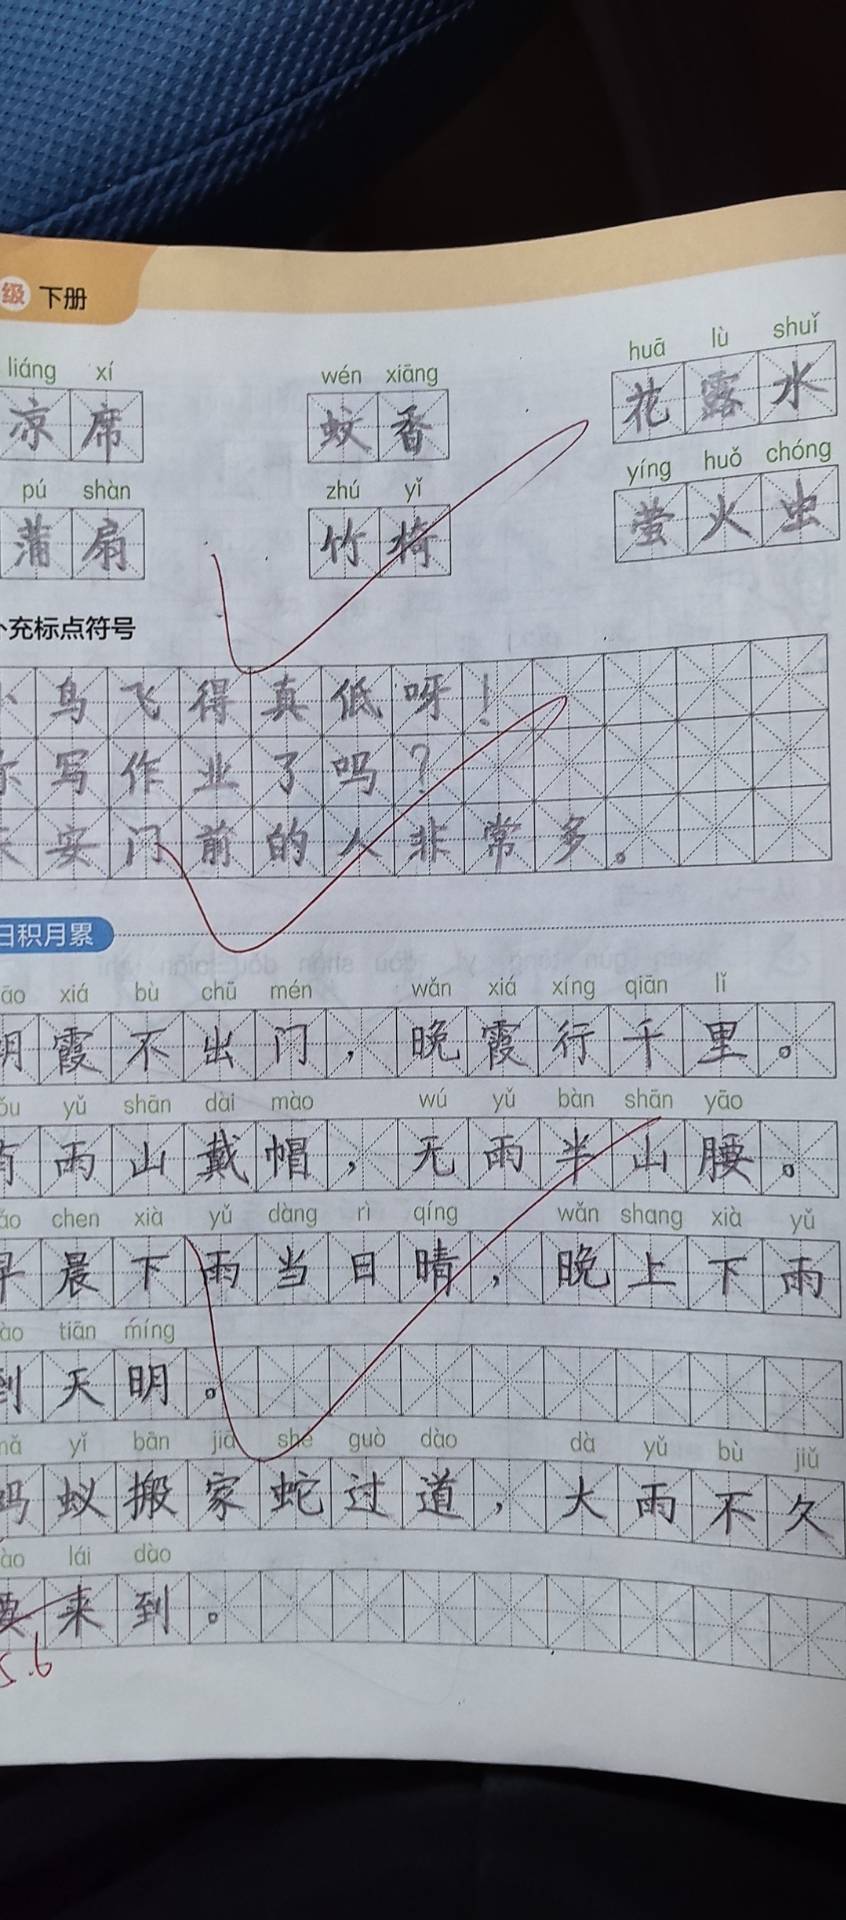 级 下册
liáng xí wén xiāng huā lù shuǐ
凉席 蚊香 花露水
pú shàn zhú yǐ yíng huǒ chóng
蒲扇 竹椅 萤火虫
补充标点符号
小鸟飞得真低呀！
你写作业了吗？
天安门前的人非常多。
日积月累
āo xiá bù chū mén wǎn xiá xíng qiān lǐ
朝霞不出门，晚霞行千里。
ǒu yǔ shān dài mào wú yǔ bàn shān yāo
有雨山戴帽，无雨半山腰。
ǎo chen xià yǔ dàng rì qíng wǎn shang xià yǔ
早晨下雨当日晴，晚上下雨
ào tiān míng
到天明。
mǎ yǐ bān jiā shé guò dào dà yǔ bù jiǔ
蚂蚁搬家蛇过道，大雨不久
ào lái dào
要来到。
5.6